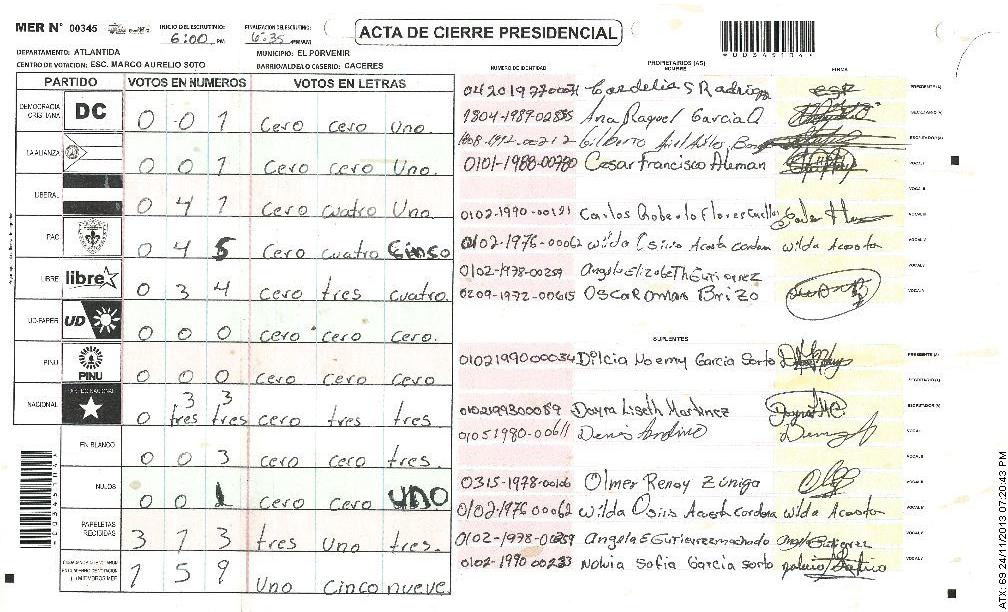 MER N° 00345 INICIO DEL ESCRUTINIO: 6:00 PM FINALIZACION DEL ESCRUTINIO: 6:35 PM/AM
ACTA DE CIERRE PRESIDENCIAL
DEPARTAMENTO: ATLANTIDA MUNICIPIO: EL PORVENIR
CENTRO DE VOTACION: ESC. MARCO AURELIO SOTO BARRIO/ALDEA O CASERIO: CACERES
PARTIDO VOTOS EN NUMEROS VOTOS EN LETRAS
DEMOCRACIA CRISTIANA DC 0 0 1 Cero Cero Uno.
LA ALIANZA 0 0 1 Cero Cero Uno.
LIBERAL 0 4 1 Cero cuatro Uno.
PAC 0 4 5 Cero Cuatro Cinco
LIBRE libre 0 3 4 Cero tres cuatro.
UD-FAPER UD 0 0 0 Cero Cero Cero.
PINU PINU 0 0 0 Cero Cero Cero
NACIONAL 3 3
0 tres tres cero tres tres.
EN BLANCO 0 0 3 Cero Cero tres.
NULOS 0 0 1 Cero Cero uno
PAPELETAS RECIBIDAS 3 1 3 tres Uno tres.
1 5 9 Uno Cinco nueve.
NUMERO DE IDENTIDAD PROPIETARIOS (AS) NOMBRE FIRMA
Cordelia S
1804-1987-02885 Ana Raquel Garcia
0101-1988-00780 Cesar Francisco Aleman
0102-1990-00191 Carlos Roberto Flores
0102-1976-00062 Wilda Osiris Acosta Cardona Wilda Acosta
0102-1978-00259 Angela Elizabeth Gutierrez
0209-1972-00615 Oscar Omar Brizo
SUPLENTES
0102199000034 Dilcia Noemy Garcia Sorto
0102199300089 Dayra Liseth Martinez
01051980-00611 Denis Andino
0315-1978-00106 Olmer Renay Zúniga
0102-1976-00062 Wilda Osiris Acosta Cardona Wilda Acosta
0102-1978-00259 Angela E Gutierrez machado Angela Gutierrez
0102-1990-00233 Nolvia Sofia Garcia Sorto
ATX: 69 24/11/2013 07:20:43 PM